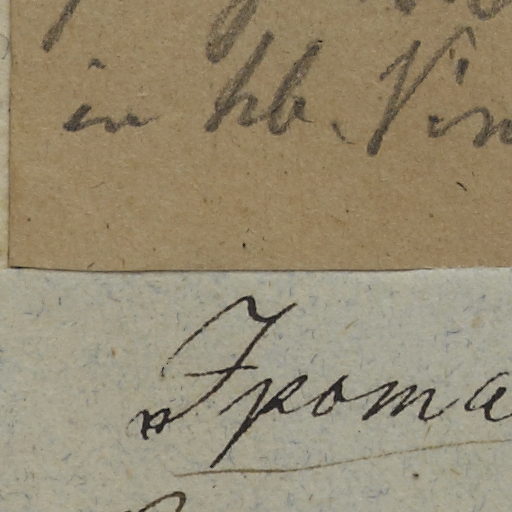 in hb. Vin
Ipoma